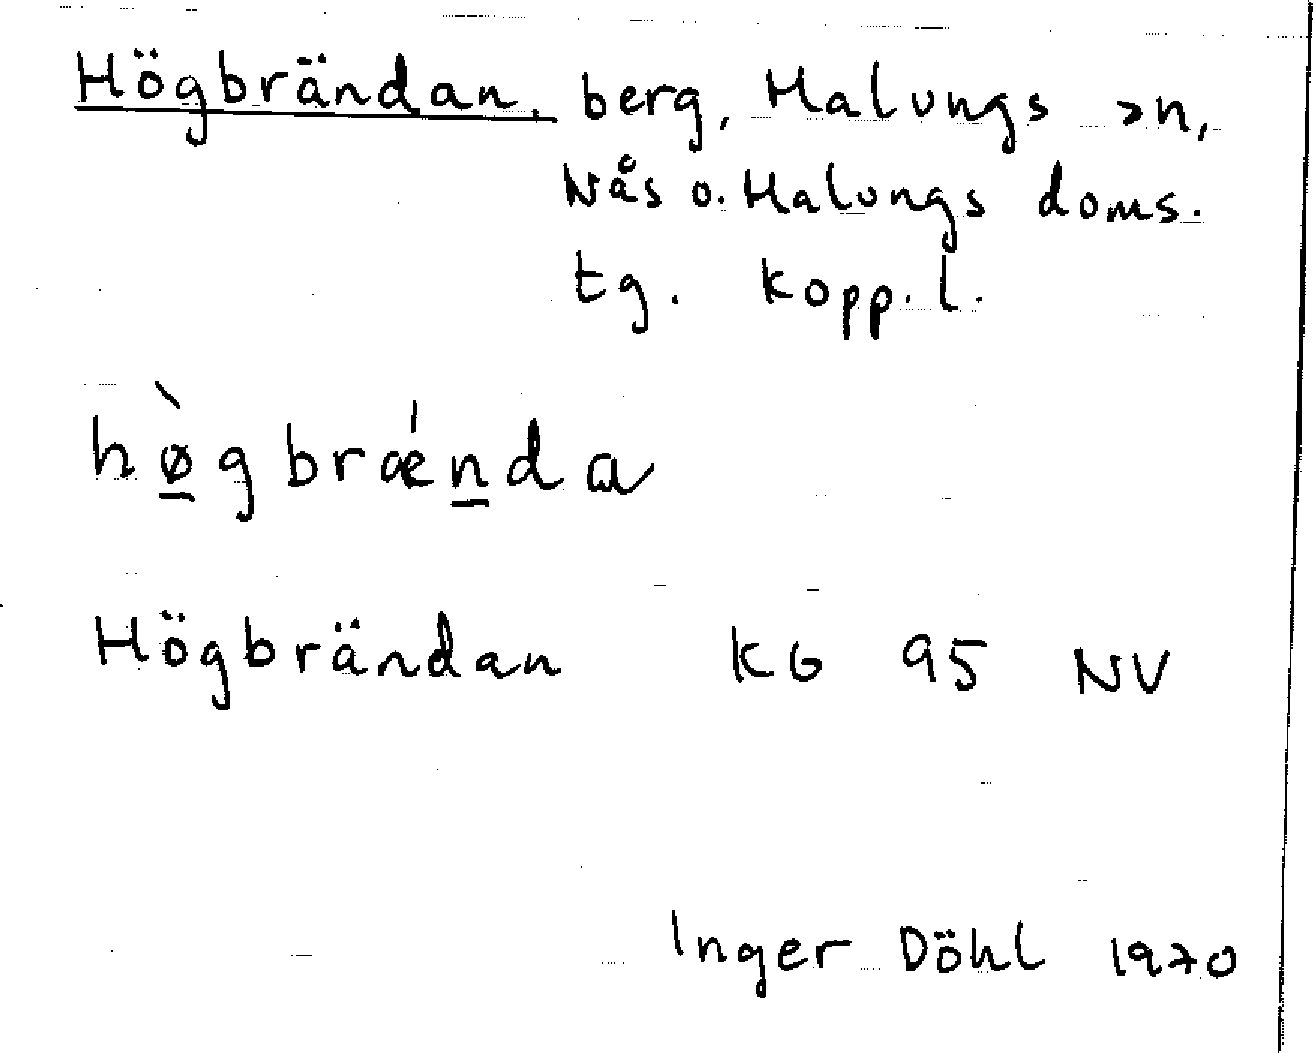 Högbrändan, berg, Malungs sn,
Nås o. Malungs doms.
tg. Kopp. l.
hø̲̀gbrǽn̲da
Högbrändan KG 95 NV
Inger Döhl 1970